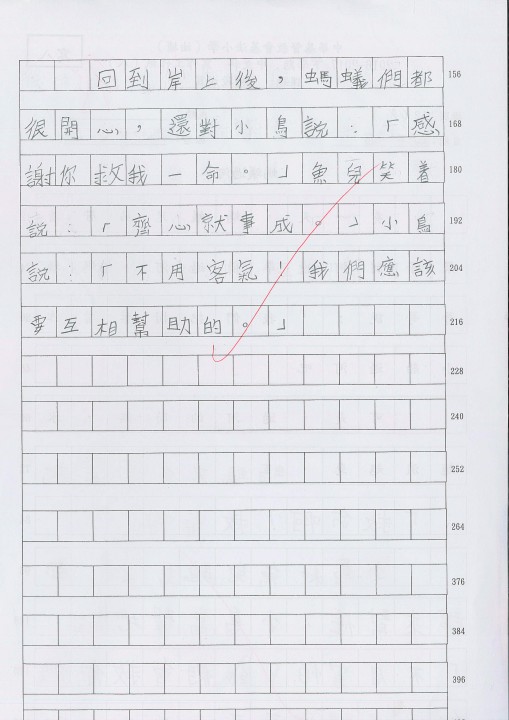 回到岸上後，螞蟻們都 156
很開心，還對小鳥說：「感 168
謝你救我一命。」魚兒笑着 180
說：「齊心就事成。」小鳥 192
說：「不用客氣！我們應該 204
要互相幫助的。」 216
228
240
252
264
376
384
396